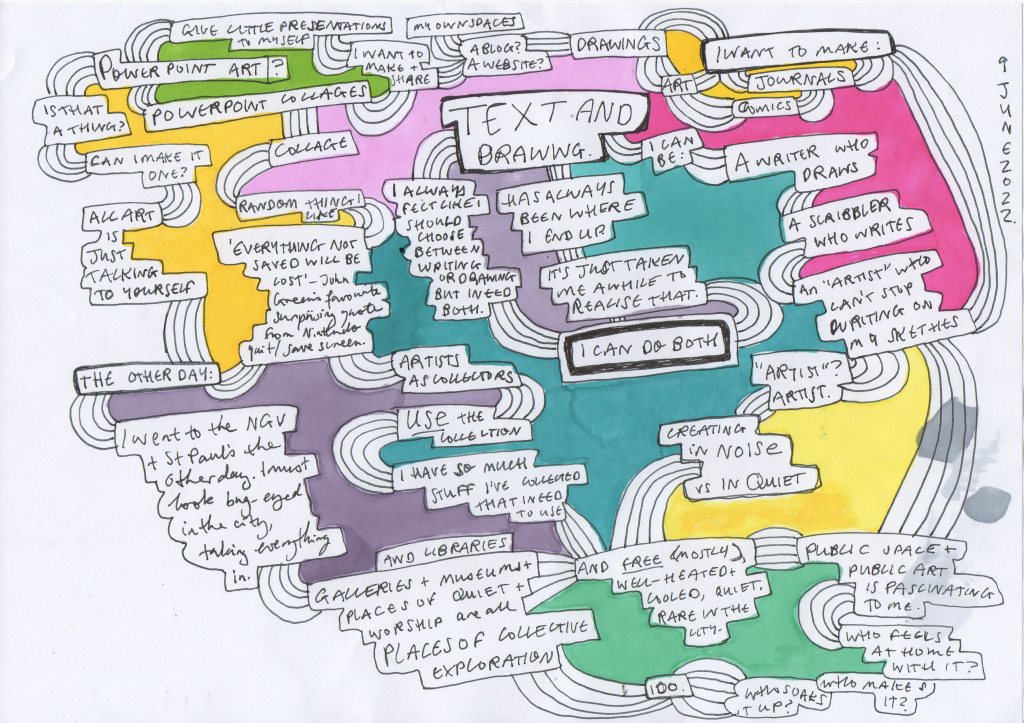 GIVE LITTLE PRESENTATIONS
TO MYSELF
POWERPOINT ART?
IS THAT
A THING?
POWERPOINT COLLAGES
CAN I MAKE IT
ONE?
ALL ART
IS
JUST
TALKING
TO YOURSELF
MY OWN SPACES
I WANT TO
MAKE +
SHARE
A BLOG?
A WEBSITE?
DRAWINGS
ART
I WANT TO MAKE:
JOURNALS
COMICS
9 JUNE 2022.
TEXT AND
DRAWING.
COLLAGE
RANDOM THINGS I
LIKE
'EVERYTHING NOT
SAVED WILL BE
LOST' - John
Green's favourite
surprising quote
from Nintendo
quit/save screen.
I ALWAYS
FELT LIKE I
SHOULD
CHOOSE
BETWEEN
WRITING
OR DRAWING
BUT I NEED
BOTH.
HAS ALWAYS
BEEN WHERE
I END UP
IT'S JUST TAKEN
ME AWHILE TO
REALISE THAT.
I CAN DO BOTH
I CAN
BE:
A WRITER WHO
DRAWS
A SCRIBBLER
WHO WRITES
AN "ARTIST" WHO
CAN'T STOP
WRITING ON
MY SKETHES
"ARTIST"?
ARTIST.
CREATING
IN NOISE
VS IN QUIET
THE OTHER DAY:
I went to the NGV
+ St Paul's the
other day. I must
look bug-eyed
in the city,
taking everything
in.
ARTISTS
AS COLLECTORS
USE THE
COLLECTION
I HAVE SO MUCH
STUFF I'VE COLLECTED
THAT I NEED
TO USE
AND LIBRARIES
GALLERIES + MUSEUMS +
PLACES OF QUIET +
WORSHIP ARE all
PLACES OF COLLECTIVE
EXPLORATION
AND FREE (MOSTLY),
WELL-HEATED +
COOLED, QUIET.
RARE IN THE
CITY.
PUBLIC SPACE +
PUBLIC ART
IS FASCINATING
TO ME.
WHO FEELS
AT HOME
WITH IT?
WHO MAKES
IT?
WHO SOAKS
IT UP?
I DO.